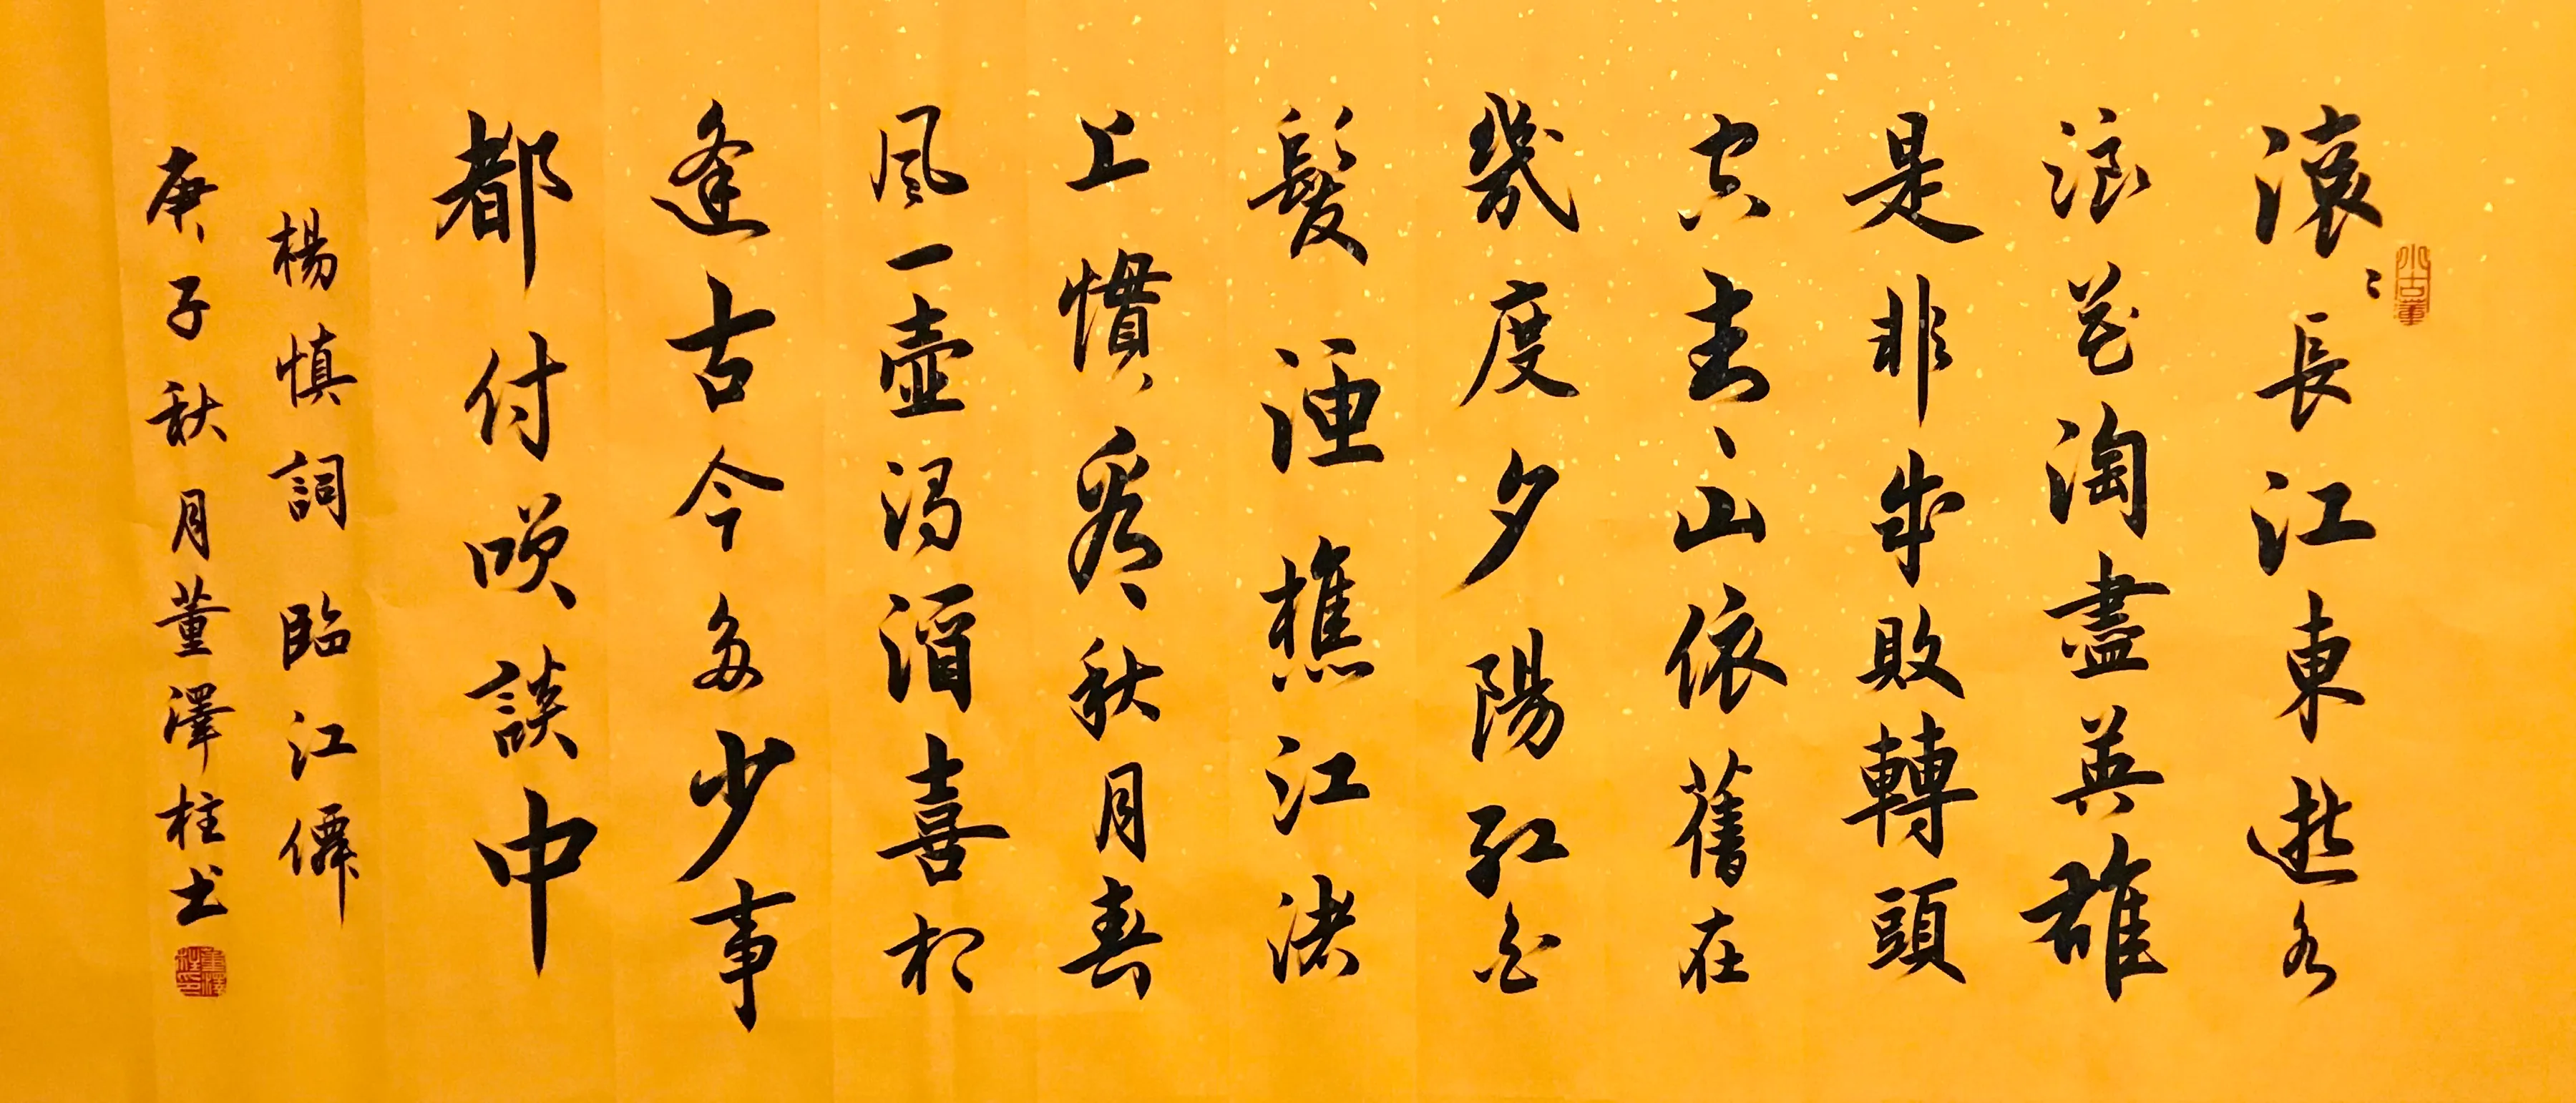 小古董
滾〻長江東逝水
浪花淘盡英雄
是非成敗轉頭
空青、山依舊在
幾度夕陽紅白
髮漁樵江渚
上慣看秋月春
風一壺濁酒喜相
逢古今多少事
都付咲談中
楊慎詞臨江僊
庚子秋月董澤柱书